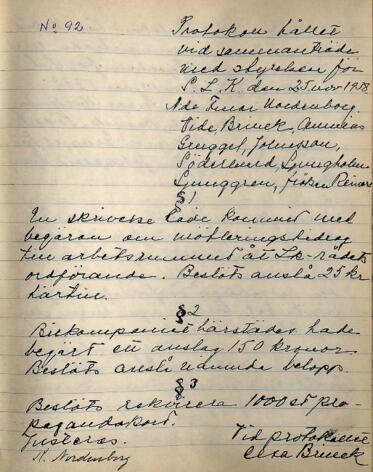 No 92
Protokoll hållet
vid sammanträde
med styrelsen för
S. L. K. den 25 nov 1938.
Nda Fruar Nordenborg
Vide, Brinck,
Gruggel, Johnsson,
Söderlund, Ljungholm
Ljunggren, fröken
§1
En skrivelse hade kommit med
begäran om möbleringsbidrag
till arbetsrummet åt Lk-rådets
ordförande. Beslöts anslå 25 kr
härtill.
§2
härstädes hade
begärt ett anslag 150 kronor.
Beslöts anslå nämnda belopp.
§3
Beslöts rekvirera 1000 st pro-
pagandakort.
Justeras.
Vid protokollet
K. Nordenborg
Elsa Brinck